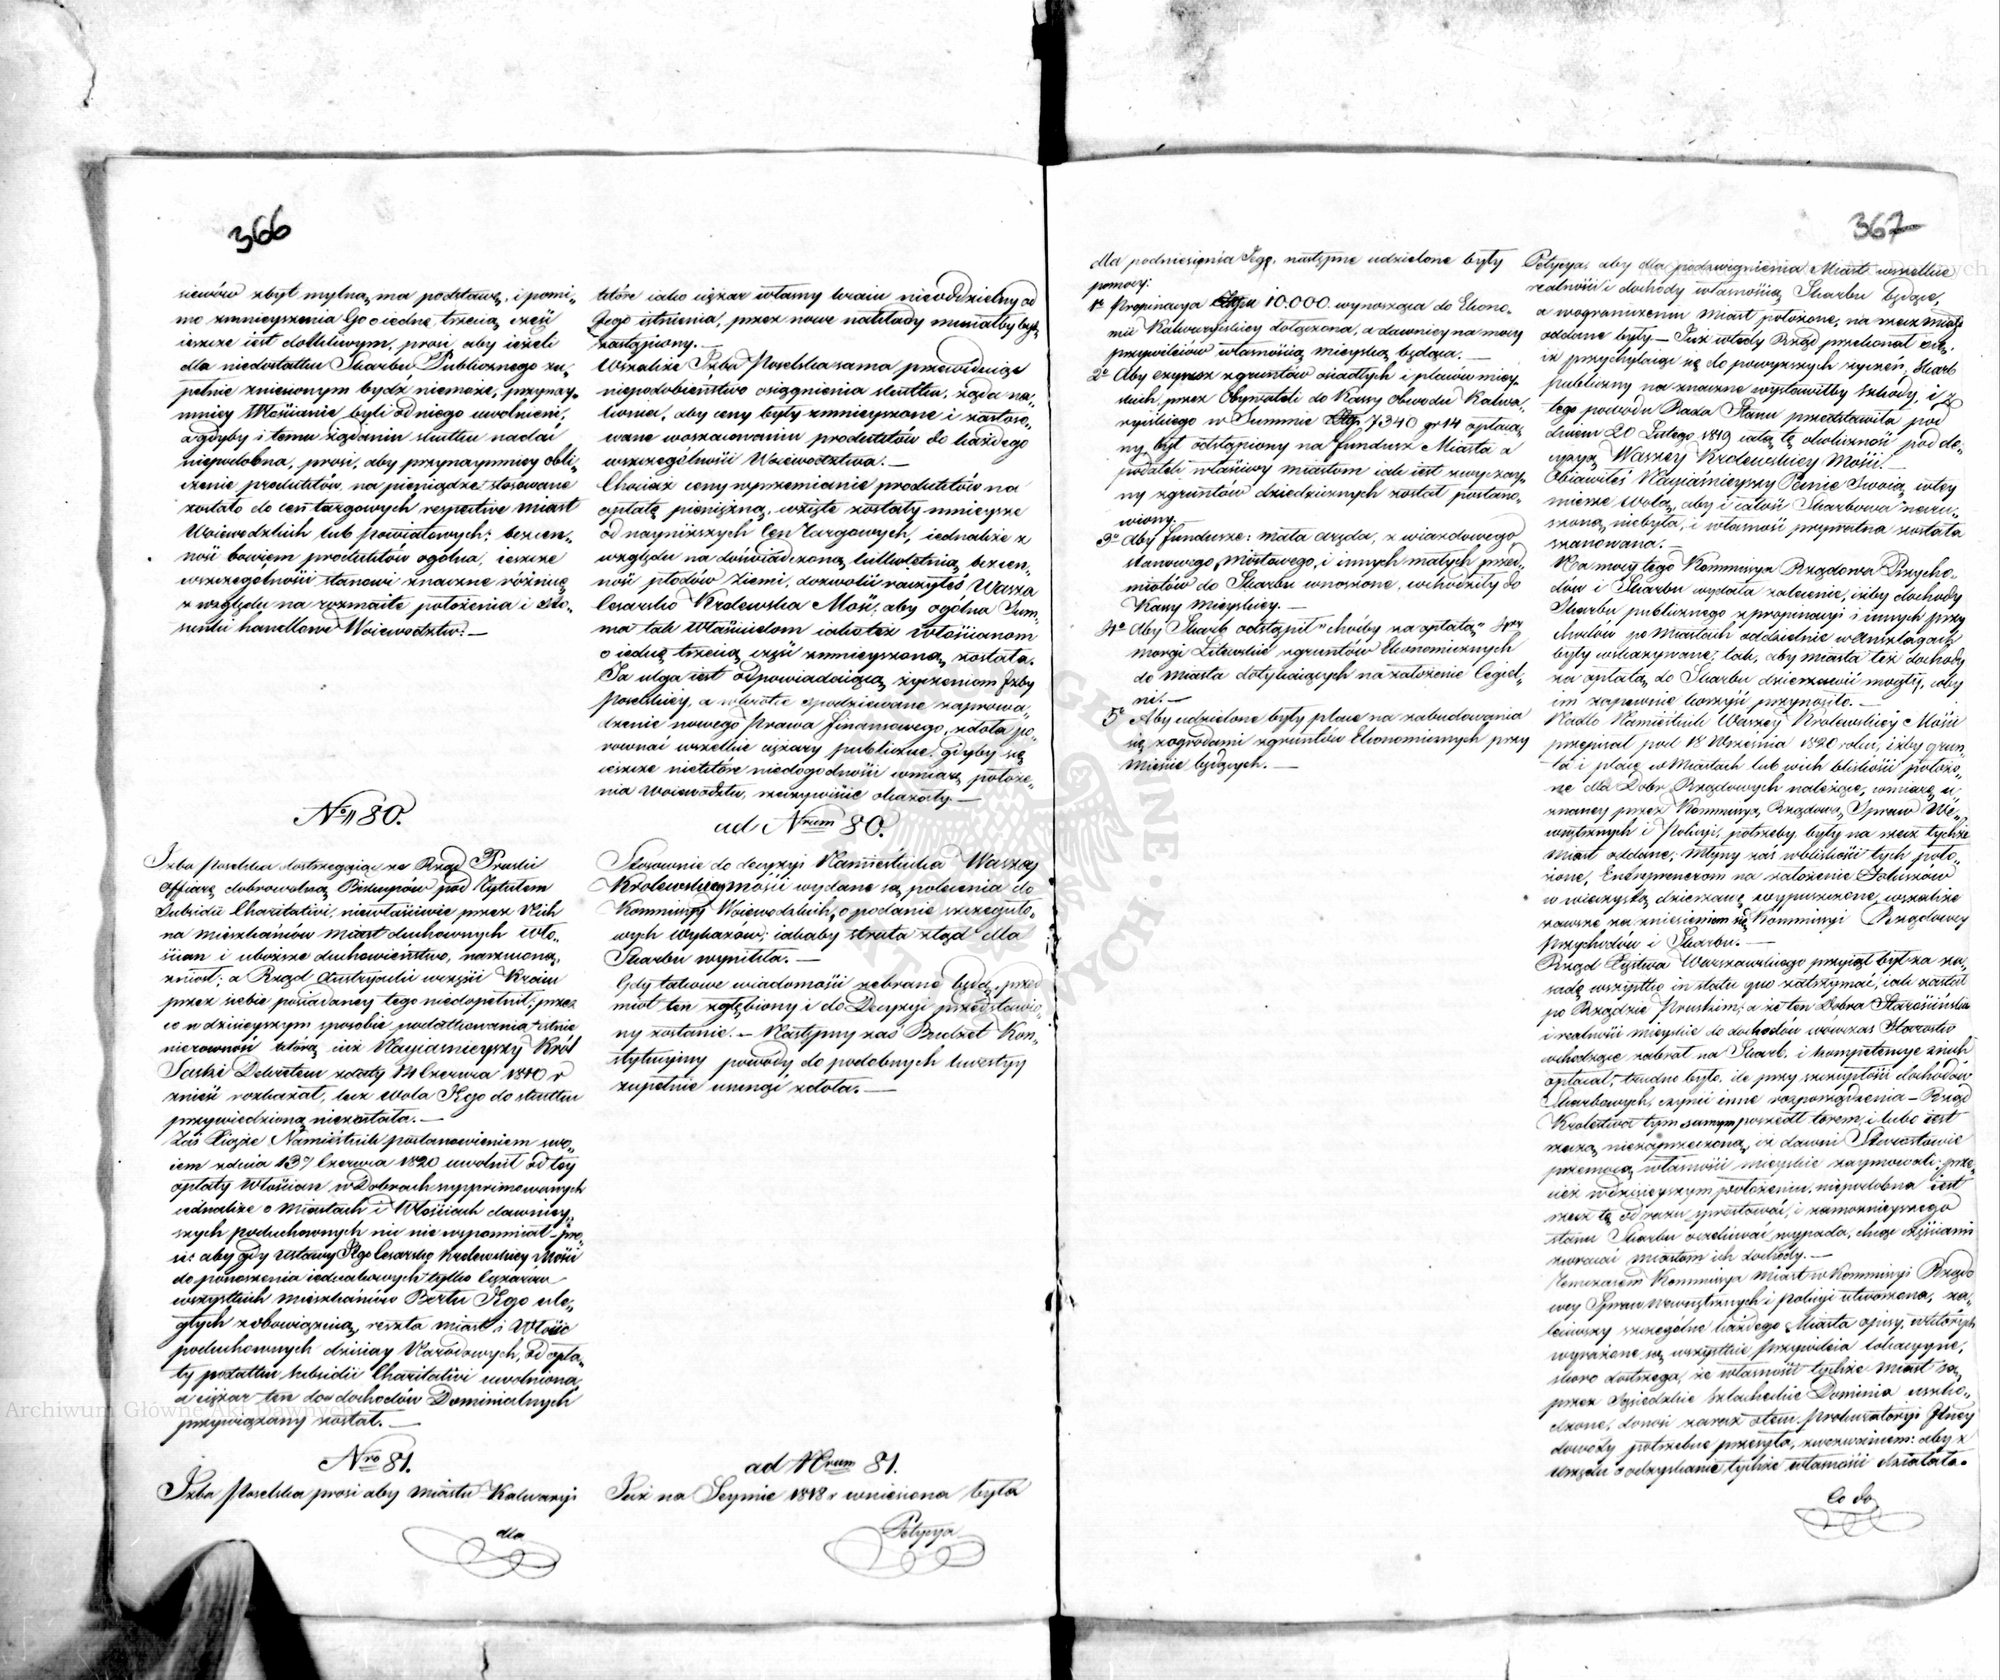 366
siewów zbyt mylną ma podstawę, i pomi-
mo zmnieyszenia Go o iednę trzecią część
ieszcze iest dotkliwym, prosi, aby ieżeli
dla niedostatku Skarbu Publicznego zu-
pełnie zniesionym bydź niemoże, przynay-
mniey Włościanie byli od niego uwolnieni,
a gdyby i temu żądaniu skutku nadać
niepodobna, prosi, aby przynaymniey obli-
czenie produktów na pieniądze stosowane
zostało do cen targowych respective miast
Woiewodzkich lub powiatowych; bo cen-
ność bowiem produktów ogólna, ieszcze
w szczególności stanowi znaczne różnicę
z względu na rozmaite położenia i sto-
sunki handlowe Woiewodztw. —
No 80.
Izba Poselska dostrzegając że Rząd Pruski
offiarę dobrowolną Biskupów pod tytułem
Subsidii Charitativi, niewłaściwie przez Nich
na mieszkańców miast duchownych wło-
ścian i uboższe duchowieństwo, narzuconą,
zniósł; a Rząd Austryacki w części Kraiu
przez siebie posiadaney tego niedopełnił; przez
co w dzisieyszym sposobie podatkowania istnie
nierowność którą iuż Nayiaśnieyszy Król
Saski Dekretem z daty 14 Czerwca 1810 r
znieść rozkazał, lecz wola Jego do skutku
przywiedzioną niezostała. —
Zaś Xiąże Namiestnik postanowieniem swo-
iem z dnia 13o Czerwca 1820 uwolnił od tey
opłaty Włościan w Dobrach suprimowanych
iednakże o Miastach i Włościach dawniey-
szych poduchownych nic nie wspomniał – pro-
si: aby gdy ustawy Jego Cesarsko Krolewskiey Mości
do ponoszenia iednakowych tylko ciężarów
wszystkich mieszkańców Berłu Jego ule-
głych zobowiązuią, reszta miast i Włości
poduchownych dzisiay Narodowych, od opła-
ty podatku subsidii Charitativi uwolniona
a ciężar ten do dochodów Dominialnych
przywiązany został. —
Nro 81.
Izba Poselska prosi aby Miastu Kalwaryi
dla
które iako ciężar własny kraiu nieoddzielny od
Jego istnienia, przez nowe nakłady musiałby bydź
zastąpiony. —
Wszakże Izba Poselska sama przewidując
niepodobieństwo osiągnienia skutku, żąda na-
koniec, aby ceny były zmnieyszone i zastoso-
wane w oszacowaniu produktów do każdego
w szczególności Woiewodztwa. —
Chociaż ceny w przemianie produktów na
opłatę pieniężną, wzięte zostały mnieysze
od nayniższych Cen Targowych, iednakże z
względu na doświadczoną kilkoletnią bezcen-
ność płodów ziemi, dozwolić raczyłeś Wasza
Cesarsko Krolewska Mość, aby ogólna Sum-
ma tak Właścicielom iakoteż włościanom
o iednę trzecią część zmnieyszoną została.
Ta ulga iest odpowiadaiącą życzeniom Izby
Poselskiey, a wkrótce spodziewane zaprowa-
dzenie nowego Prawa Finansowego, zdoła po-
równać wszelkie ciężary publiczne, gdyby się
ieszcze niektóre niedogodności w miarę położe-
nia Woiewodztw, rzeczywiście okazały. —
ad Nrum 80.
Stosownie do decyzyi Namiestnika Waszey
Krolewskiey mości wydane są polecenia do
Kommissyi Woiewodzkich, o podanie szczegóło-
wych wykazów; iakaby strata ztąd dla
Skarbu wynikła. —
Gdy takowe wiadomości zebrane będą, przed
miot ten zgłębiony i do Decyzyi przedstawio-
ny zostanie. — Następny zaś Budżet Kon-
stytucyjny powody do podobnych kwestyy
zupełnie usunąć zdoła. —
ad Nrum 81.
Już na Seymie 1818 r wniesiona była
Petycya
367
dla podniesienia Jego, następne udzielone były
pomocy:
1o Propinacya 10.000 wynosząca do Ekono-
mii Kalwaryiskiey dołączona, a dawniey na mocy
przywileiów własnością mieyską będąca. —
2o Aby czynsz z gruntów osiadłych i placów miey-
skich, przez Obywateli do Kassy obwodu Kalwa-
ryiskiego w Summie 7340 gr 14 opłaca-
ny, był odstąpiony na fundusz Miasta a
podatek właściwy miastom iak iest zwyczay-
ny z gruntów dziedzicznych został postano-
wiony.
3o Aby fundusze: małą arędą, z wiazdowego
stanowego, mostowego, i innych małych przed-
miotów do Skarbu wnoszone, wchodziły do
Kassy Mieyskiey. —
4o Aby Skarb odstąpił choćby za opłatą
morgi Litewskie z gruntów Ekonomicznych
do miasta dotykaiących na założenie Cegiel-
ni. —
5o Aby udzielone były place na zabudowania
się zagrodami z gruntów Ekonomicznych przy
Mieście będących. —
Petycya, aby dla podzwignienia Miast wszelkie
realności i dochody własnością Skarbu będące,
a w ograniczeniu miast położone, na rzecz miast
oddane były — Już wtedy Rząd przekonał się,
iż przychylaiąc się do powyższych życzeń, Skarb
publiczny na znaczne wystawiłby szkody, i z
tego powodu Rada Stanu przedstawiła pod
dniem 20 Lutego 1819 całą tę okoliczność pod de-
cyzyą Waszey Krolewskiey Mości. —
Obiawiłeś Nayiaśnieyszy Panie Swoią w tey
mierze wolą, aby i całość Skarbowa naru-
szoną niebyła, i własność prywatna została
szanowana. —
Na mocy tego Kommissya Rządowa Przycho-
dów i Skarbu wydała zalecenie, iżby dochody
Skarbu publicznego z propinacyi i innych przy
chodów po Miastach oddzielnie w Anszlagach
były wskazywane; tak, aby miasta też dochody
za opłatą do Skarbu dzierżawić mogły, coby
im zapewnie korzyść przynosiło. —
Nadto Namiestnik Waszey Krolewskiey Mości
przepisał pod 18 Września 1820 roku, iżby grun-
ta i place w Miastach lub w ich bliskości położo-
ne do Dobr Rządowych należące, w miarę u-
znaney przez Kommissyą Rządową Spraw We-
wnętrznych i Policyi, potrzeby, były na rzecz tychże
Miast oddane; młyny zaś w bliskości tych poło-
żone, Entreprenerom na założenie Foluszów
w wieczystą dzierżawę wypuszczone, wszakże
zawsze za zniesieniem się Kommissyi Rządowey
Przychodów i Skarbu. —
Rząd Xięstwa Warszawskiego przyiął był za za-
sadę wszystko in statu quo zatrzymać, iak zastał
po Rządzie Pruskim; a że ten Dobra Starościńskie
i realności mieyskie do dochodów wówczas Starostw
wchodzące zabrał na Skarb, i kompetencye z nich
opłacał; trudno było, ile przy szczupłości dochodów
Skarbowych, czynić inne rozporządzenia — Rząd
Krolestwa tym samym poszedł torem; i lubo iest
rzeczą niezaprzeczoną, iż dawni Starostowie
przemocą własności mieyskie zaymowali; prze-
cież w dzisieyszym położeniu, niepodobna iest
rzecz tę od razu sprostować, i zamożnieyszego
stanu Skarbu oczekiwać wypada, chcąc częściami
zwracać miastom ich dochody. —
Tymczasem Kommissya miast w Kommissyi Rządo
wey Spraw Wewnętrznych i Policyi utworzona, za-
leciwszy szczególne każdego Miasta opisy, w których
wyrażone są wszystkie przywileia lokacyyne,
skoro dostrzega, że własność tychże miast są
przez sąsiedzkie szlacheckie Dominia uszko-
dzone, donosi zaraz o tem Prokuratoryi Jlney
dowody potrzebne przesyła, z wezwaniem: aby z
Urzędu o odzyskanie tychże własności działała.
Co do
Archiwum Główne Akt Dawnych